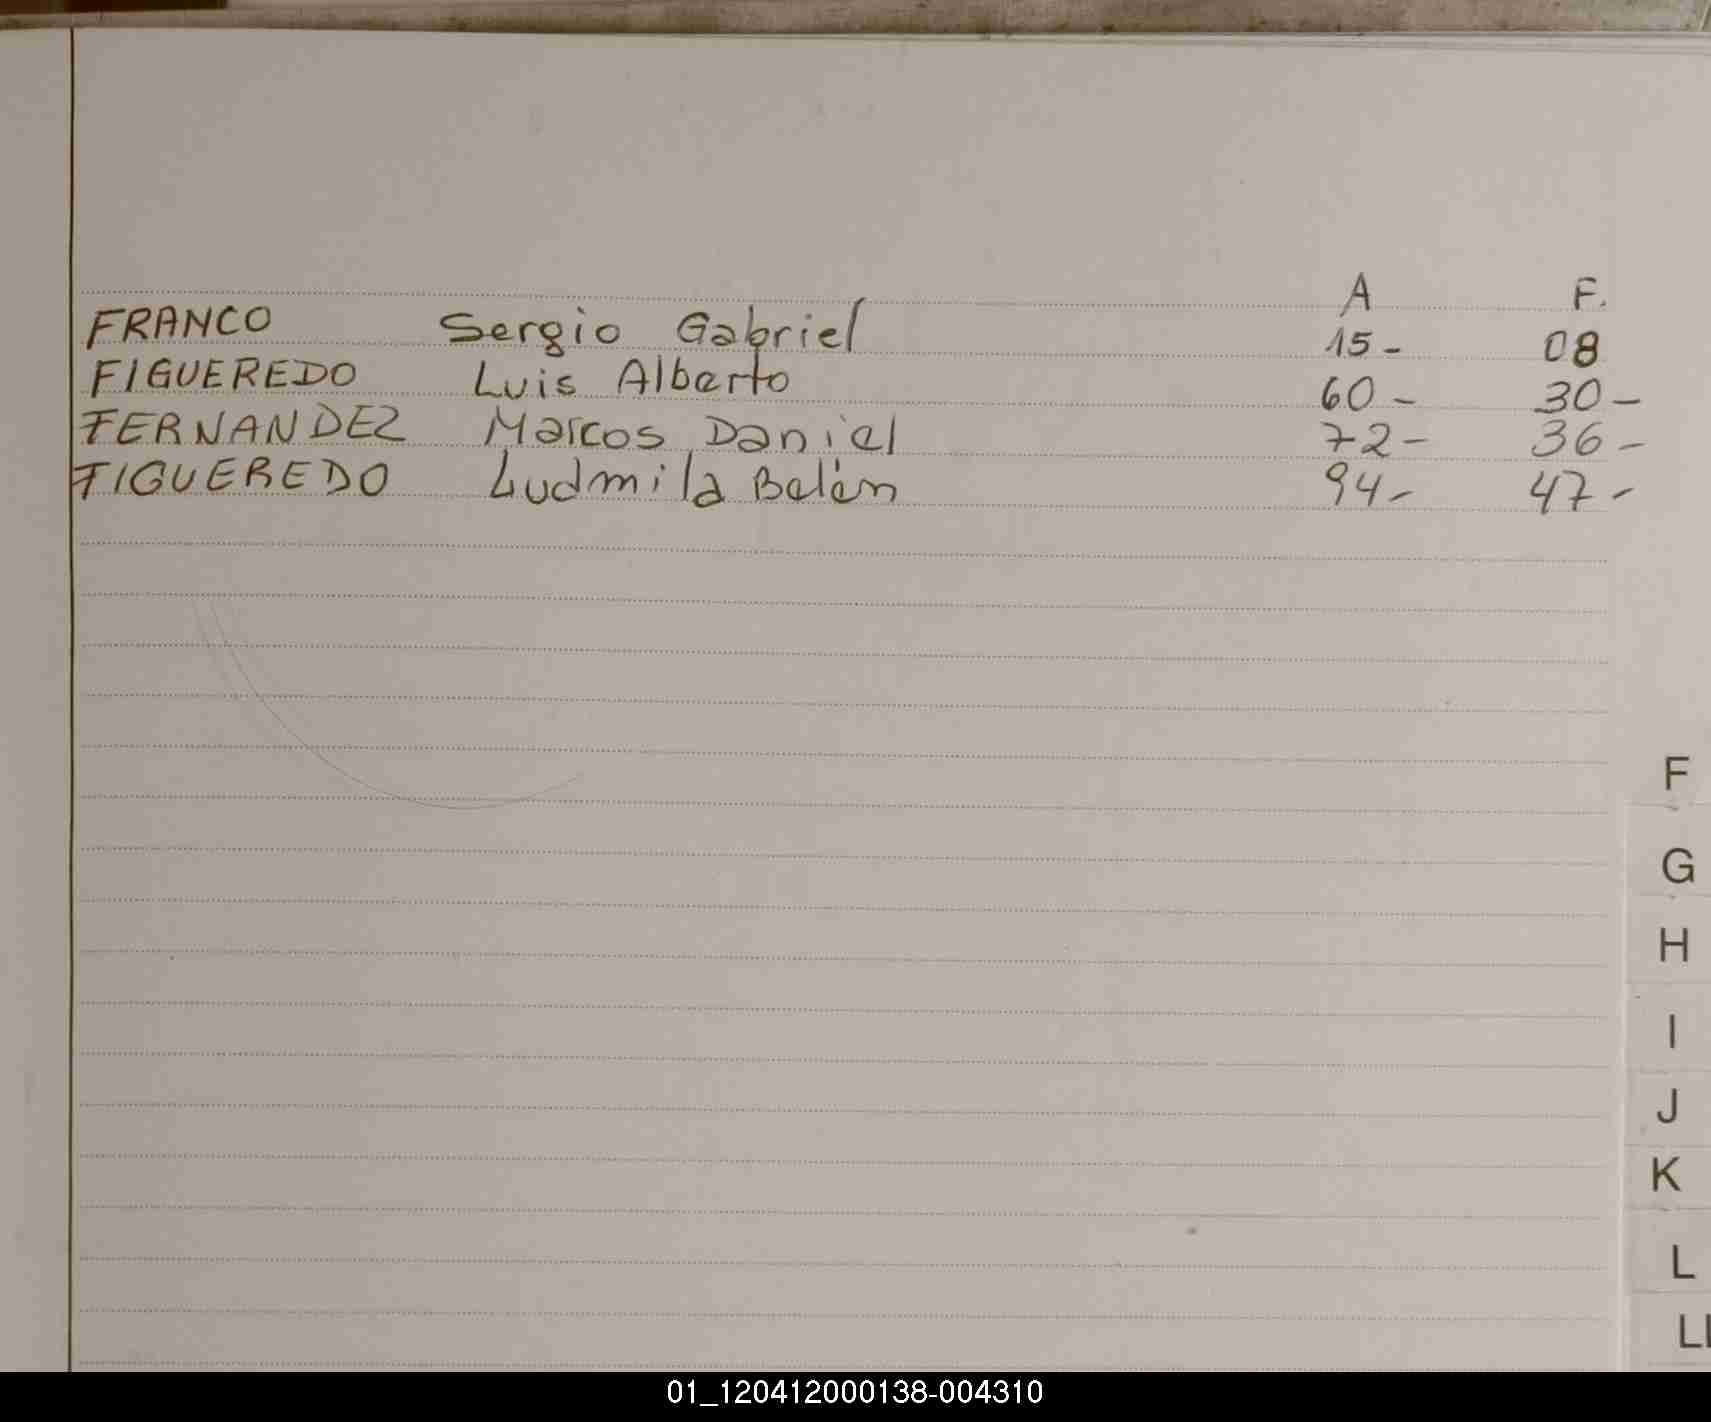 A F.
FRANCO Sergio Gabriel 15- 08
FIGUEREDO Luis Alberto 60- 30-
FERNANDEZ Marcos Daniel 72- 36-
FIGUEREDO Ludmila Belén 94- 47-
F
G
H
I
J
K
L
LL
01_120412000138-004310